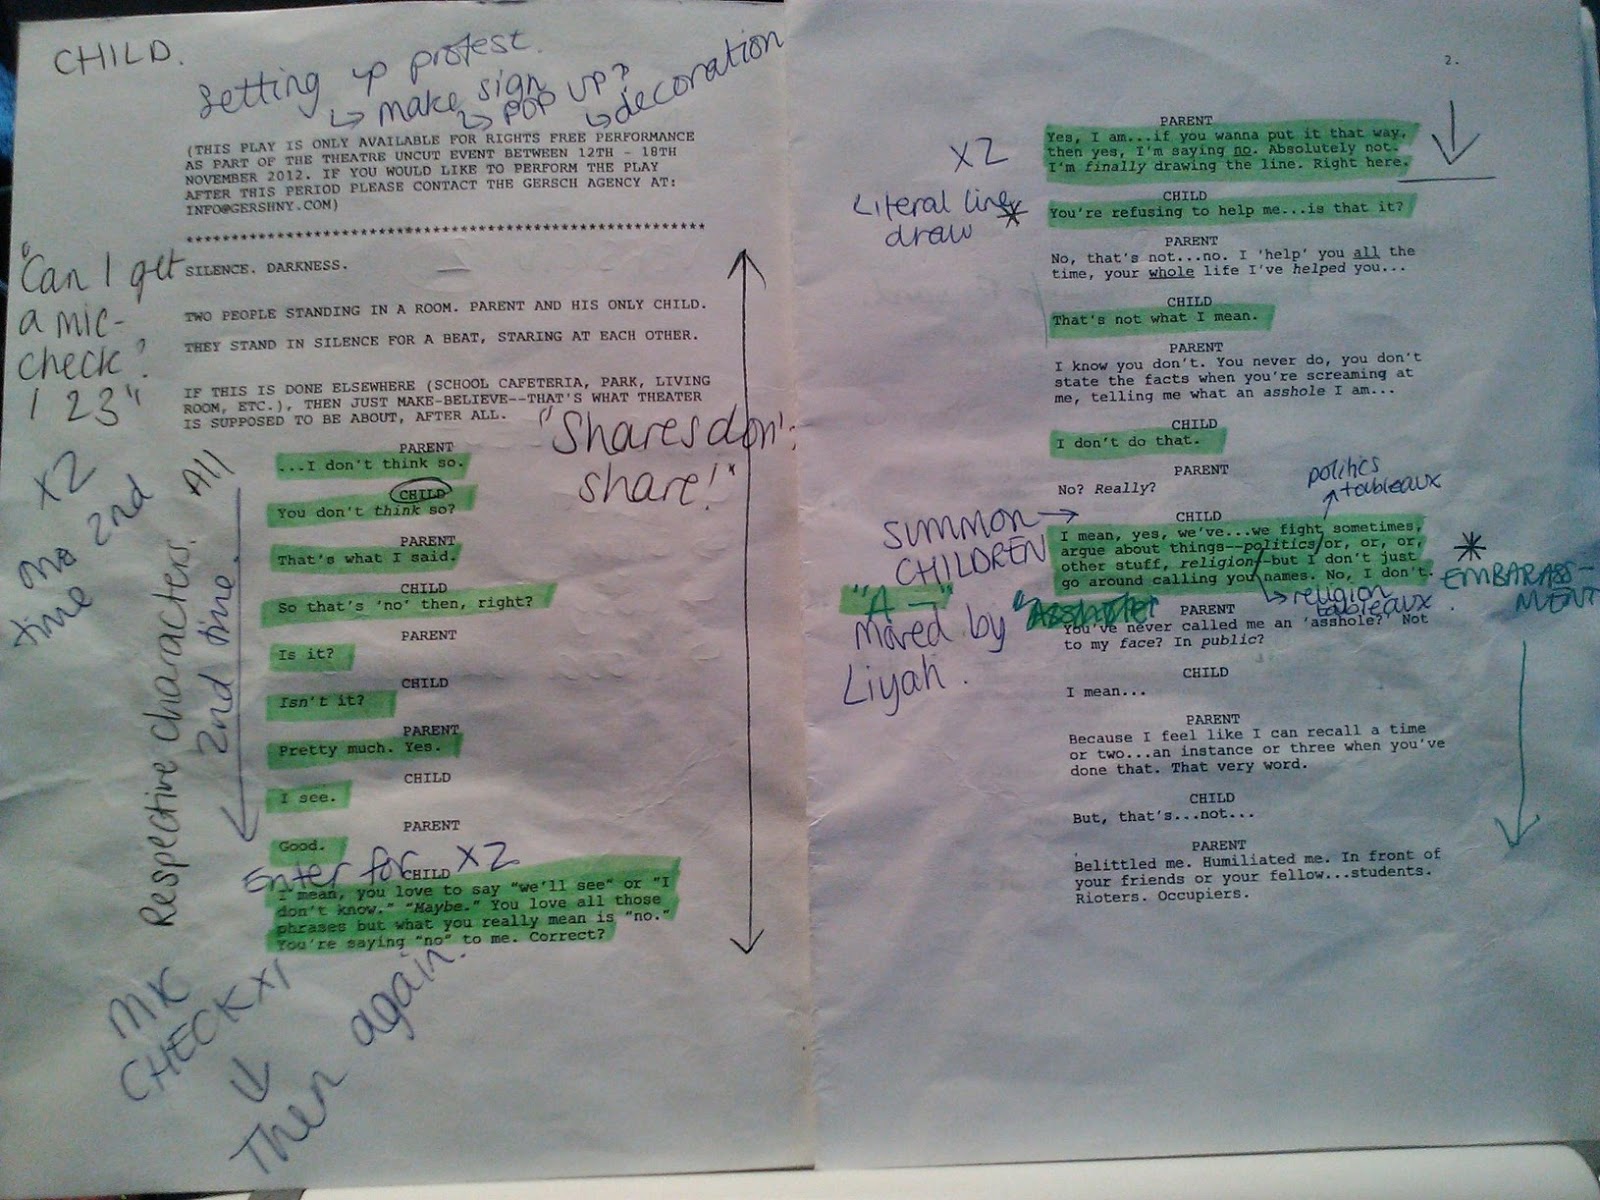 CHILD.
Setting up protest.
↳ make sign
↳ POP UP?
↳ decoration
(THIS PLAY IS ONLY AVAILABLE FOR RIGHTS FREE PERFORMANCE
AS PART OF THE THEATRE UNCUT EVENT BETWEEN 12TH - 18TH
NOVEMBER 2012. IF YOU WOULD LIKE TO PERFORM THE PLAY
AFTER THIS PERIOD PLEASE CONTACT THE GERSCH AGENCY AT:
INFO@GERSHNY.COM)
***********************************************************
"Can I get
a mic-
check?
1 2 3"
x2
no 2nd
time
SILENCE. DARKNESS.
TWO PEOPLE STANDING IN A ROOM. PARENT AND HIS ONLY CHILD.
THEY STAND IN SILENCE FOR A BEAT, STARING AT EACH OTHER.
IF THIS IS DONE ELSEWHERE (SCHOOL CAFETERIA, PARK, LIVING
ROOM, ETC.), THEN JUST MAKE-BELIEVE--THAT'S WHAT THEATER
IS SUPPOSED TO BE ABOUT, AFTER ALL.
"Shares don't
share!"
All
Respective characters.
2nd time.
PARENT
...I don't think so.
CHILD
You don't think so?
PARENT
That's what I said.
CHILD
So that's 'no' then, right?
PARENT
Is it?
CHILD
Isn't it?
PARENT
Pretty much. Yes.
CHILD
I see.
PARENT
Good.
Enter for x2
CHILD
I mean, you love to say "we'll see" or "I
don't know." "Maybe." You love all those
phrases but what you really mean is "no."
You're saying "no" to me. Correct?
MIC
CHECK x1
↓
Then again.
2.
PARENT
Yes, I am...if you wanna put it that way,
then yes, I'm saying no. Absolutely not.
I'm finally drawing the line. Right here.
x2
Literal line
draw *
CHILD
You're refusing to help me...is that it?
PARENT
No, that's not...no. I 'help' you all the
time, your whole life I've helped you...
CHILD
That's not what I mean.
PARENT
I know you don't. You never do, you don't
state the facts when you're screaming at
me, telling me what an asshole I am...
CHILD
I don't do that.
PARENT
No? Really?
politics
tableaux
SUMMON →
CHILDREN
CHILD
I mean, yes, we've...we fight sometimes,
argue about things--politics or, or, or,
other stuff, religion--but I don't just
go around calling you names. No, I don't.
↳ religion
tableaux.
* EMBARASS-
MENT
"A—"
moved by "Asshole"
Liyah.
PARENT
You've never called me an 'asshole?' Not
to my face? In public?
CHILD
I mean...
PARENT
Because I feel like I can recall a time
or two...an instance or three when you've
done that. That very word.
CHILD
But, that's...not...
PARENT
Belittled me. Humiliated me. In front of
your friends or your fellow...students.
Rioters. Occupiers.